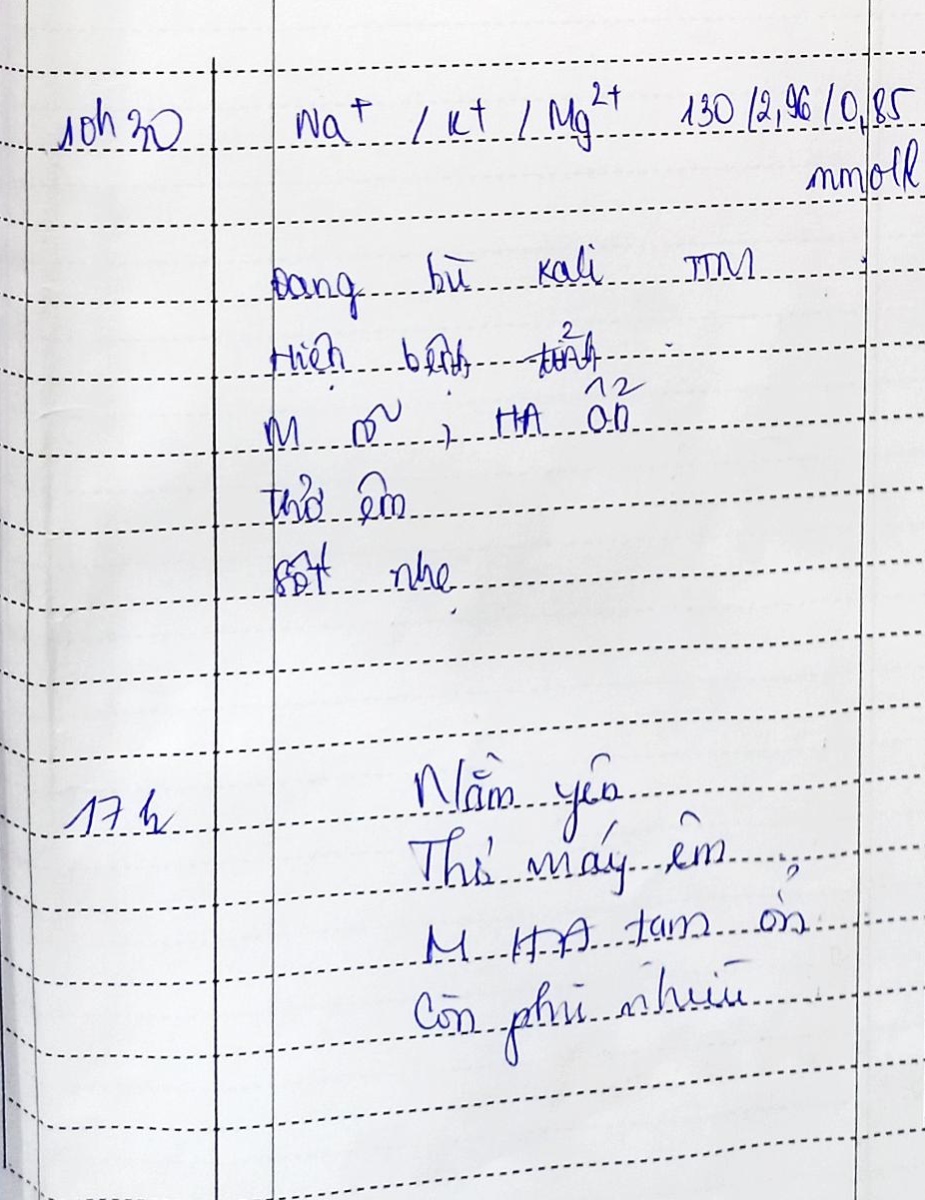 10h30 Na⁺ / K⁺ / Mg²⁺ 130/2,96/0,85
mmol/l
Đang bù kali TTM
Hiện bệnh tỉnh
M rõ, HA ổn
Thở êm
Sốt nhẹ
17h Nằm yên
Thở máy êm
M HA tạm ổn
Còn phù nhiều